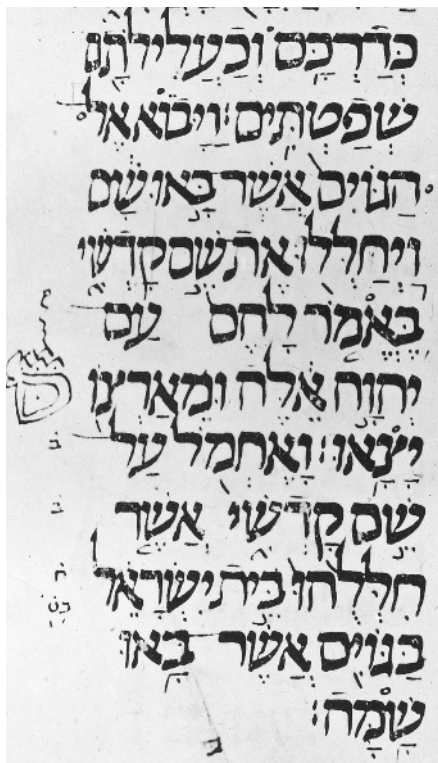 כְּדַרְכָּם וְכַעֲלִילוֹתָם
שְׁפַטְתִּים׃ וַיָּבוֹא אֶל
הַגּוֹיִם אֲשֶׁר בָּאוּ שָׁם
וַיְחַלְּלוּ אֶת שֵׁם קָדְשִׁי
בֶּאֱמֹר לָהֶם עַם
יְהוָה אֵלֶּה וּמֵאַרְצוֹ
יָצָאוּ׃ וָאֶחְמֹל עַל
שֵׁם קָדְשִׁי אֲשֶׁר
חִלְּלֻהוּ בֵּית יִשְׂרָאֵל
בַּגּוֹיִם אֲשֶׁר בָּאוּ
שָׁמָּה׃